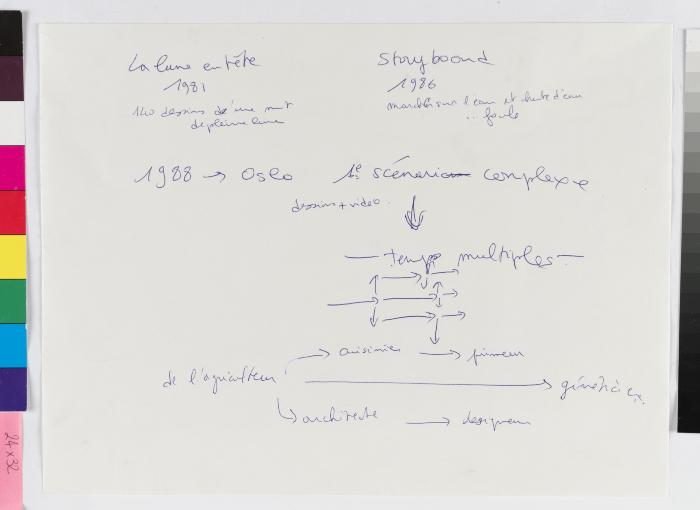 La lune en tête
1981
140 dessins d'une nuit
de pleine lune
Storyboard
1986
marcher sur l'eau et chute d'eau
... foule
1988 → Oslo 1er scénario complexe
dessins + video
— temps multiples —
cuisinier →
de l'agriculteur → généticien
architecte → designer
24 x 32